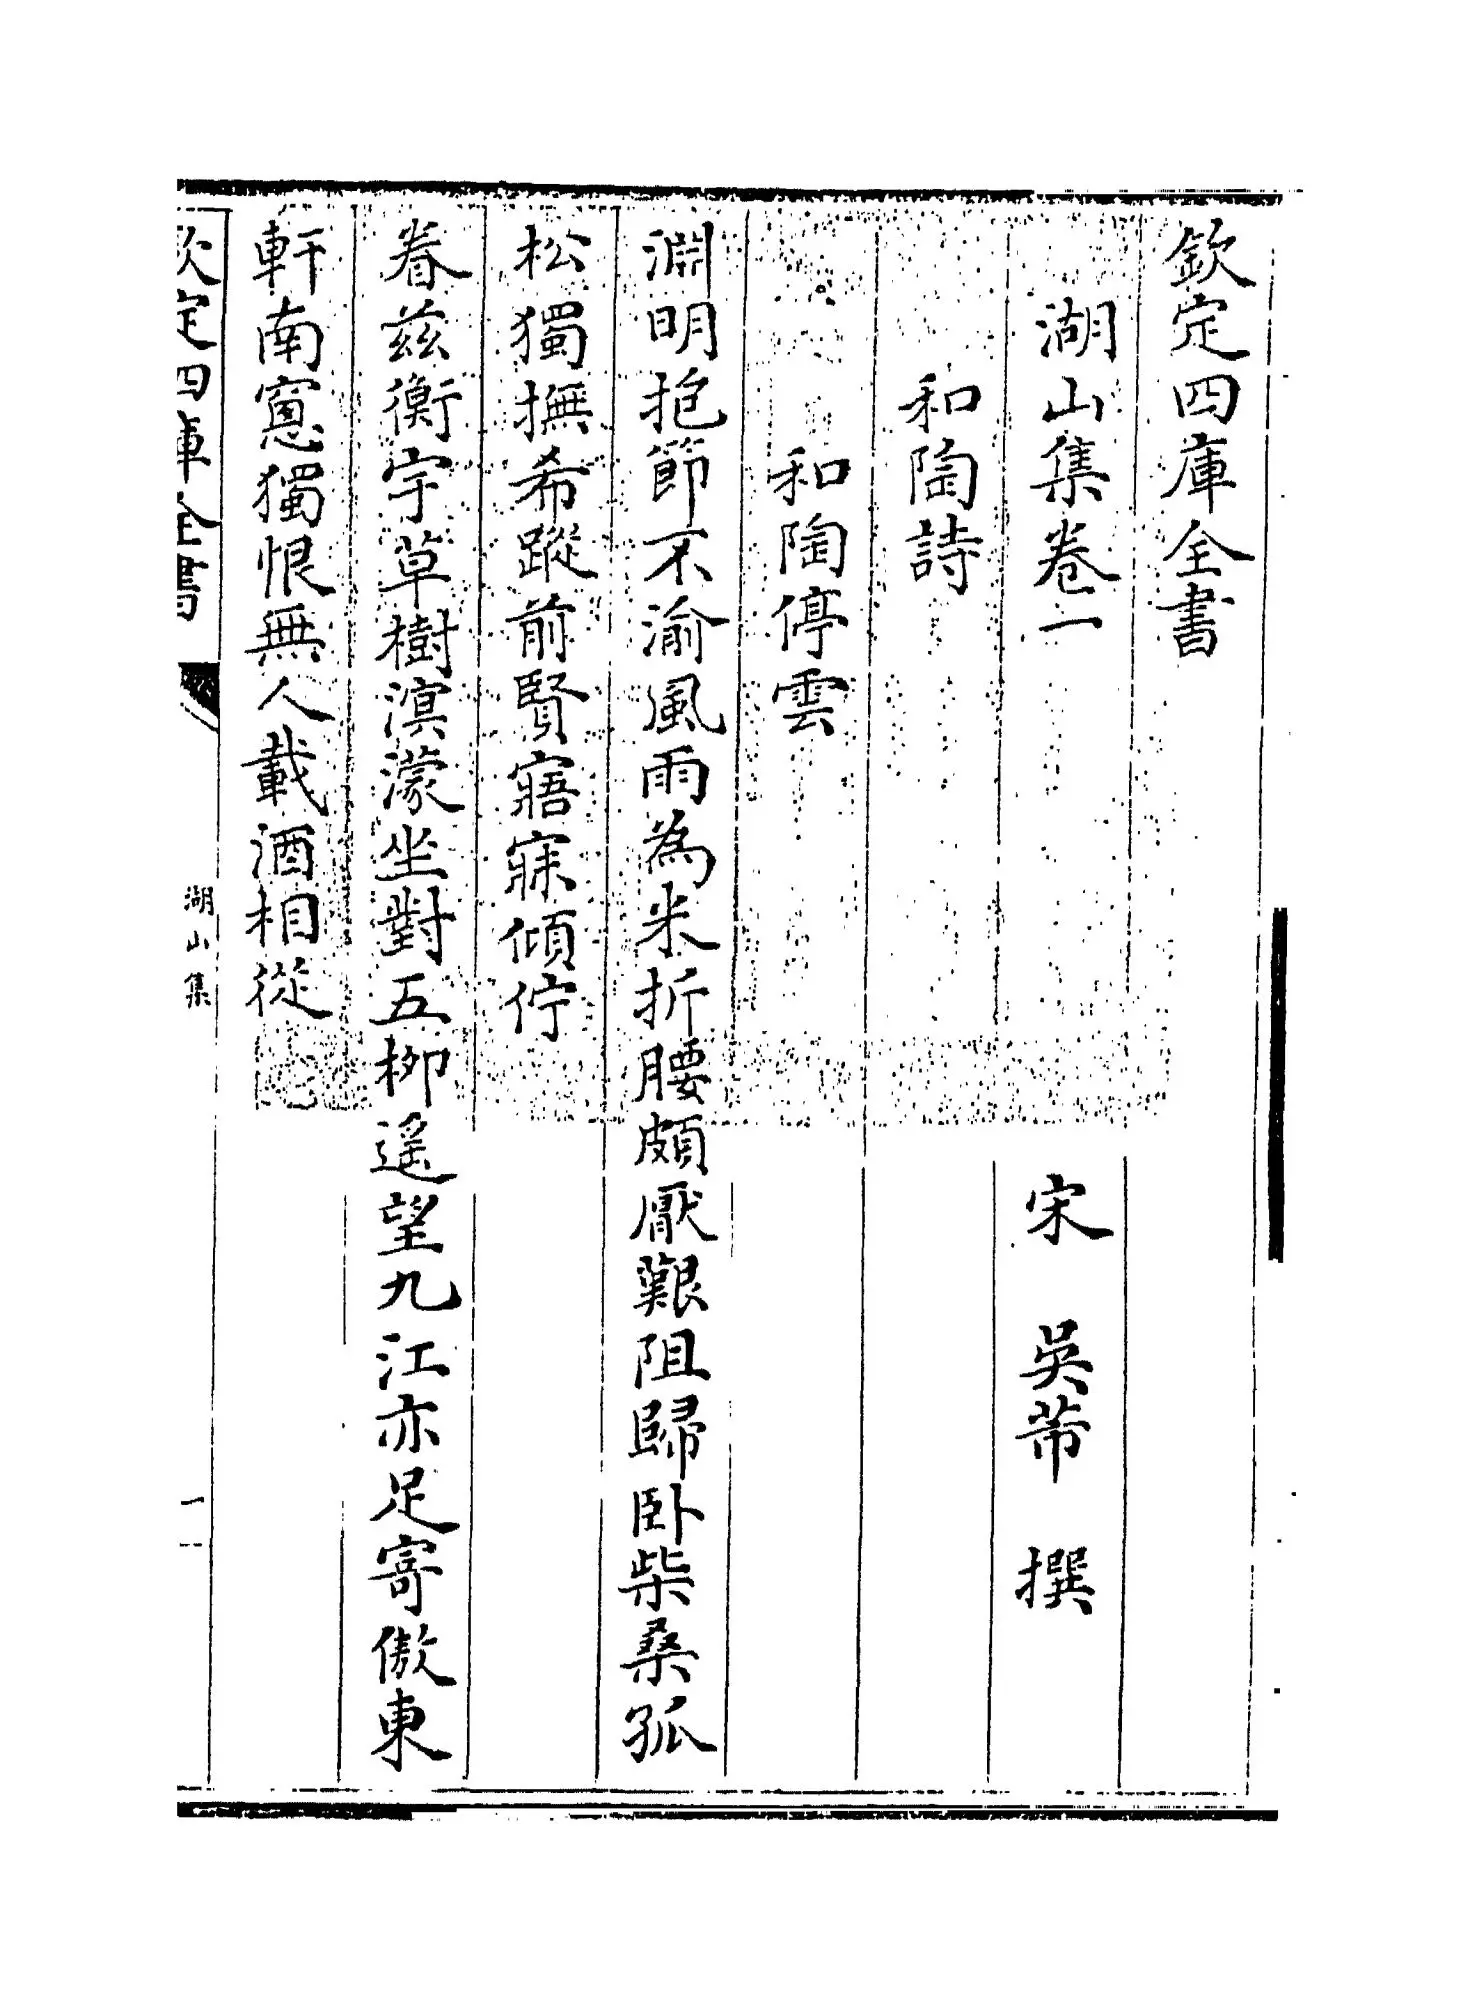 欽定四庫全書
湖山集卷一
宋 吳芾 撰
和陶詩
和陶停雲
淵明抱節不渝風雨為米折腰頗厭艱阻歸卧柴桑孤
松獨撫希蹤前賢寤寐傾佇
眷兹衡宇草樹溟濛坐對五柳遥望九江亦足寄傲東
軒南窻獨恨無人載酒相從
欽定四庫全書
湖山集
一